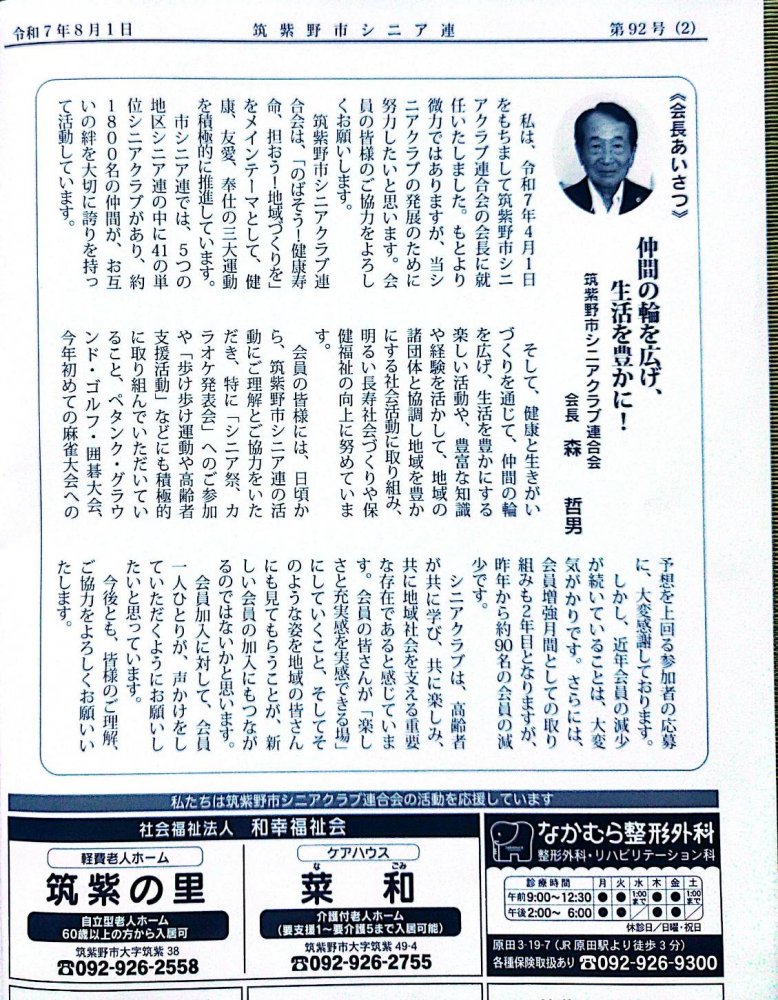 令和7年8月1日
筑紫野市シニア連
第92号(2)
《会長あいさつ》
仲間の輪を広げ、
生活を豊かに！
筑紫野市シニアクラブ連合会
会長 森 哲男
私は、令和7年4月1日
をもちまして筑紫野市シニ
アクラブ連合会の会長に就
任いたしました。もとより
微力ではありますが、当シ
ニアクラブの発展のために
努力したいと思います。会
員の皆様のご協力をよろし
くお願いします。
筑紫野市シニアクラブ連
合会は、「のばそう！健康寿
命、担おう！地域づくりを」
をメインテーマとして、健
康、友愛、奉仕の三大運動
を積極的に推進しています。
市シニア連では、5つの
地区シニア連の中に41の単
位シニアクラブがあり、約
1800名の仲間が、お互
いの絆を大切に誇りを持っ
て活動しています。
そして、健康と生きがい
づくりを通じて、仲間の輪
を広げ、生活を豊かにする
楽しい活動や、豊富な知識
や経験を活かして、地域の
諸団体と協調し地域を豊か
にする社会活動に取り組み、
明るい長寿社会づくりや保
健福祉の向上に努めていま
す。
会員の皆様には、日頃か
ら、筑紫野市シニア連の活
動にご理解とご協力をいた
だき、特に「シニア祭、カ
ラオケ発表会」へのご参加
や「歩け歩け運動や高齢者
支援活動」などにも積極的
に取り組んでいただいてい
ること、ペタンク・グラウ
ンド・ゴルフ・囲碁大会、
今年初めての麻雀大会への
予想を上回る参加者の応募
に、大変感謝しております。
しかし、近年会員の減少
が続いていることは、大変
気がかりです。さらには、
会員増強月間としての取り
組みも2年目となりますが、
昨年から約90名の会員の減
少です。
シニアクラブは、高齢者
が共に学び、共に楽しみ、
共に地域社会を支える重要
な存在であると感じていま
す。会員の皆さんが「楽し
さと充実感を実感できる場」
にしていくこと、そしてそ
のような姿を地域の皆さん
にも見てもらうことが、新
しい会員の加入にもつなが
るのではないかと思います。
会員加入に対して、会員
一人ひとりが、声かけをし
ていただくようにお願いし
たいと思っています。
今後とも、皆様のご理解、
ご協力をよろしくお願いい
たします。
私たちは筑紫野市シニアクラブ連合会の活動を応援しています
社会福祉法人 和幸福祉会
軽費老人ホーム
筑紫の里
自立型老人ホーム
60歳以上の方から入居可
筑紫野市大字筑紫38
☎092-926-2558
ケアハウス
な ごみ
菜 和
介護付老人ホーム
(要支援1〜要介護5まで入居可能)
筑紫野市大字筑紫49-4
☎092-926-2755
なかむら整形外科
整形外科・リハビリテーション科
診療時間 月 火 水 木 金 土
午前9:00〜12:30 ● ● 1:00まで ● ● 1:00まで
午後2:00〜 6:00 ● ● ／ ● ● ／
休診日／日曜・祝日
原田3-19-7(JR原田駅より徒歩3分)
各種保険取扱あり ☎092-926-9300